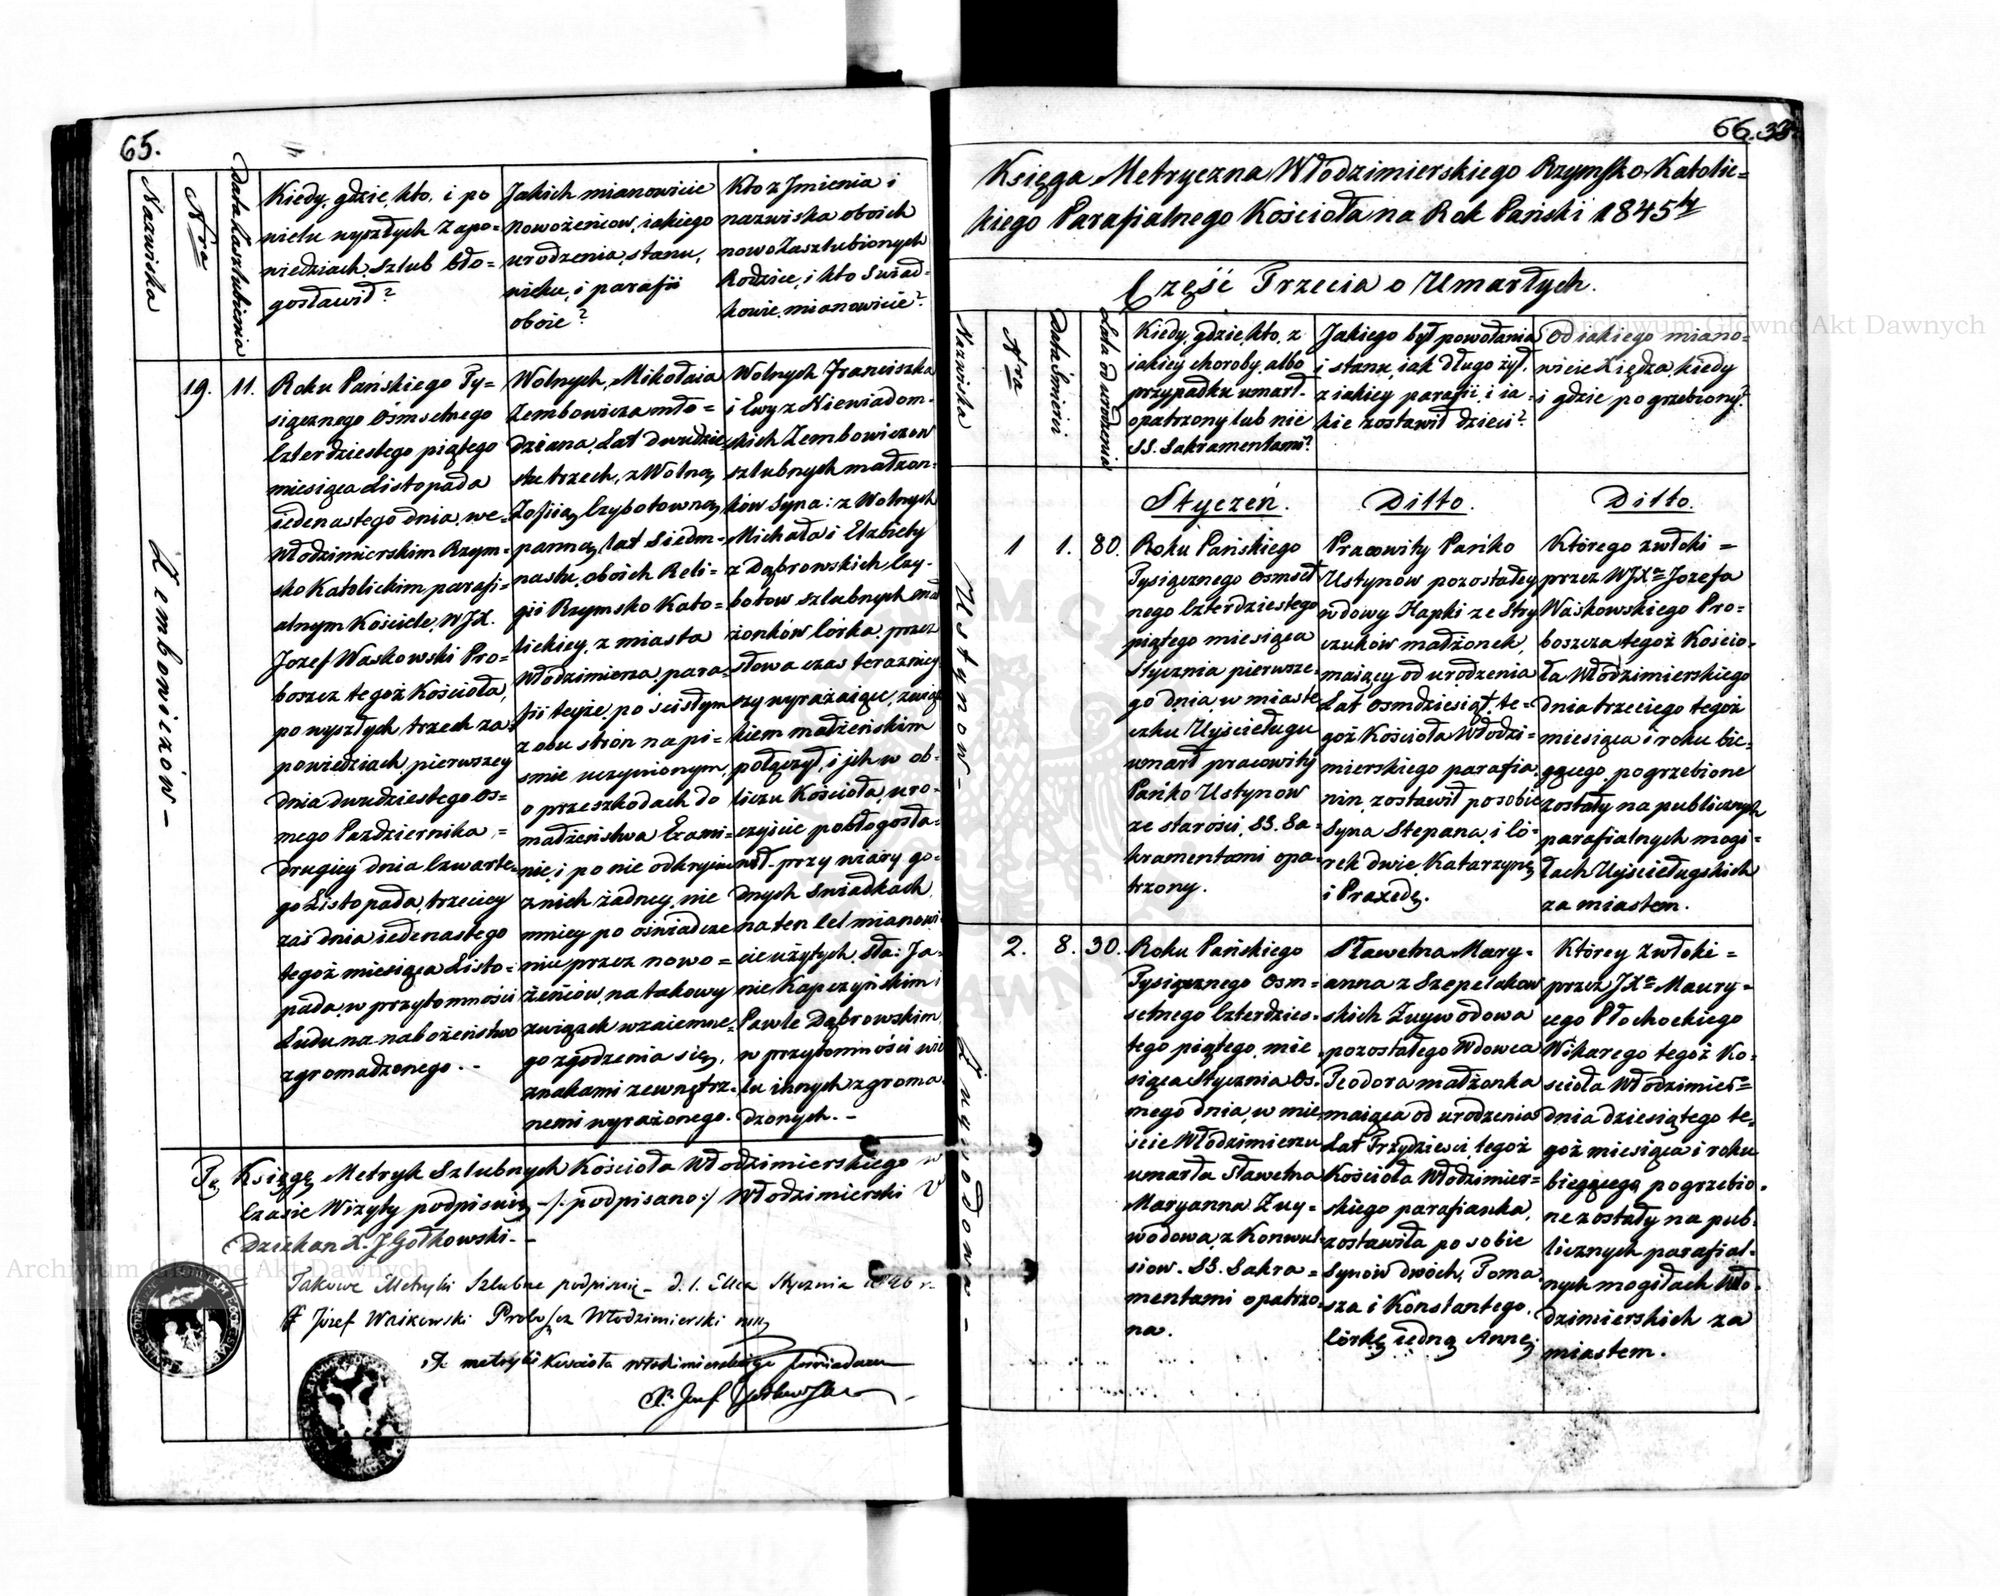 65.
Nazwiska
Nra
Data Zaszlubienia
Kiedy, gdzie, kto, i po
wielu wyszłych Zapo=
wiedziach, szlub bło=
gosławił?
Jakich mianowicie
nowożeńcow, iakiego
urodzenia, stanu,
wieku, i parafii
oboie?
Kto z Jmienia i
nazwiska oboich
nowo Zaszlubionych
Rodzice, i kto Swiad=
kowie, mianowicie?
Zembowiczow -
19.
11.
Roku Pańskiego Ty=
siącznego Ośmsetnego
Czterdziestego piątego
miesiąca Listopada
iedenastego dnia, we=
Włodzimierskim Rzym=
sko Katolickim parafi=
alnym Kościele, WJX.
Jozef Waskowski Pro=
boszcz tegoż Kościoła,
po wyszłych trzech za=
powiedziach, pierwszey
dnia dwudziestego Os=
mego Pazdziernika, =
drugiey dnia Czwarte=
go Listopada, trzeciey
zaś dnia iedenastego
tegoż miesiąca Listo=
pada, w przytomności
Ludu na nabożeństwo
zgromadzonego. -
Wolnych, Mikołaia
Zembowicza mło=
dziana, Lat dwudzie=
stu trzech, z Wolną
Zofiią Czybotowną
panną, lat Siedm=
nastu, oboich Reli=
gii Rzymsko Kato=
lickiey, z miasta
Włodzimierza, para=
fii teyże, po scisłym
z obu strón na pi=
smie uczynionym,
o przeszkodach do
małżeństwa Exami=
nie, i po nie odkryciu
z nich żadney, nie
mniey po oświadcze
niu przez nowo=
żeńców, na takowy
związek wzaiemne=
go zgodzenia się,
znakami zewnętrz=
nemi wyrażonego.
Wolnych Franciszka
i Ewy z Niewiadom=
skich Zembowiczow
szlubnych małżon=
ków Syna: z Wolnych
Michała i Elzbiety
z Dąbrowskich Czy=
botow szlubnych mał
żonków Córka, przez
słowa czas terazniey
szy wyrażaiące, związ
kiem małżeńskim
połączył, i jch w ob=
liczu Kościoła, uro=
czyscie pobłogosła=
wił, przy wiary go=
dnych Swiadkach
na ten Cel mianowi
cie użytych, Sła: Ja=
nie Kapczyńskim i
Pawle Dąbrowskim,
w przytomności wie
lu innych zgroma=
dzonych. -
Tę Księgę Metryk Szlubnych Kościoła Włodzimierskiego w
Czasie Wizyty podpisuię -/: podpisano:/ Włodzimierski
Dziekan X. J Gołkowski. -
Takowe Metryki Szlubne podpisuię - d. 1. Stycznia 1846 r.
X Józef Waskowski Proboszcz Włodzimierski
metryki Kościoła Włodzimierskiego
66.
33.
Księga Metryczna Włodzimierskiego Rzymsko Katolic=
kiego Parafialnego Kościoła na Rok Pański 1845ty
Część Trzecia o Umarłych.
Nazwiska
Nra
Data Śmierci
Lata od urodzenia
Kiedy, gdzie, kto, z
jakiey choroby, albo
przypadku umarł.
opatrzony lub nie
SS. Sakramentami?
Jakiego był powołania
i stanu, iak długo żył,
z iakiey parafii, i ia=
kie zostawił dzieci?
Od iakiego miano=
wicie Xiędza, kiedy
i gdzie pogrzebiony?
Styczeń.
Ditto.
Ditto.
Ustynow -
1
1.
80.
Roku Pańskiego
Tysiącznego Osmset
nego Czterdziestego
piątego miesiąca
Stycznia pierwsze=
go dnia, w miaste=
czku Uyścieługa
umarł pracowity
Pańko Ustynow
ze starości, SS. Sa=
kramentami opa=
trzony.
Pracowity Pańko
Ustynow pozostałey
wdowy Hapki ze Stry
czuków małżonek,
maiący od urodzenia
Lat Osmdziesiąt, te=
goż Kościoła Włodzi=
mierskiego parafia=
nin, zostawił po sobie
Syna Stepana, i Có=
rek dwie, Katarzynę
i Praxedę.
Którego zwłoki =
przez WJXa Jozefa
Waskowskiego Pro=
boszcza tegoż Kościo=
ła Włodzimierskiego
dnia trzeciego tegoż
miesiąca i roku bie=
gącego, pogrzebione
zostały na publicznych
parafialnych mogi=
łach Uyścieługskich
za miastem.
Żuywodowa -
2.
8.
30.
Roku Pańskiego
Tysiącznego Osm=
setnego Czterdzies=
tego piątego, mie
siąca Stycznia Os=
mego dnia, w mie=
ście Włodzimierzu
umarła Sławetna
Maryanna Żuy=
wodowa, z Konwul=
siow. SS. Sakra=
mentami opatrzo=
na.
Sławetna Mary=
anna z Szepelakow
skich Żuywodowa
pozostałego Wdowca
Teodora małżonka
maiąca od urodzenia
Lat Trzydzieści, tegoż
Kościoła Włodzimier=
skiego parafianka,
zostawiła po sobie
Synów dwóch, Toma
sza i Konstantego,
Córkę iedną Annę.
Którey zwłoki =
przez JXa Maury=
cego Płochockiego
Wikarego tegoż Ko=
scioła Włodzimier=
dnia dziesiątego te=
goż miesiąca i roku
biegącego, pogrzebio=
ne zostały na pub=
licznych parafial=
nych mogiłach Wło=
dzimierskich za
miastem.
Archiwum Główne Akt Dawnych
Archiwum Główne Akt Dawnych